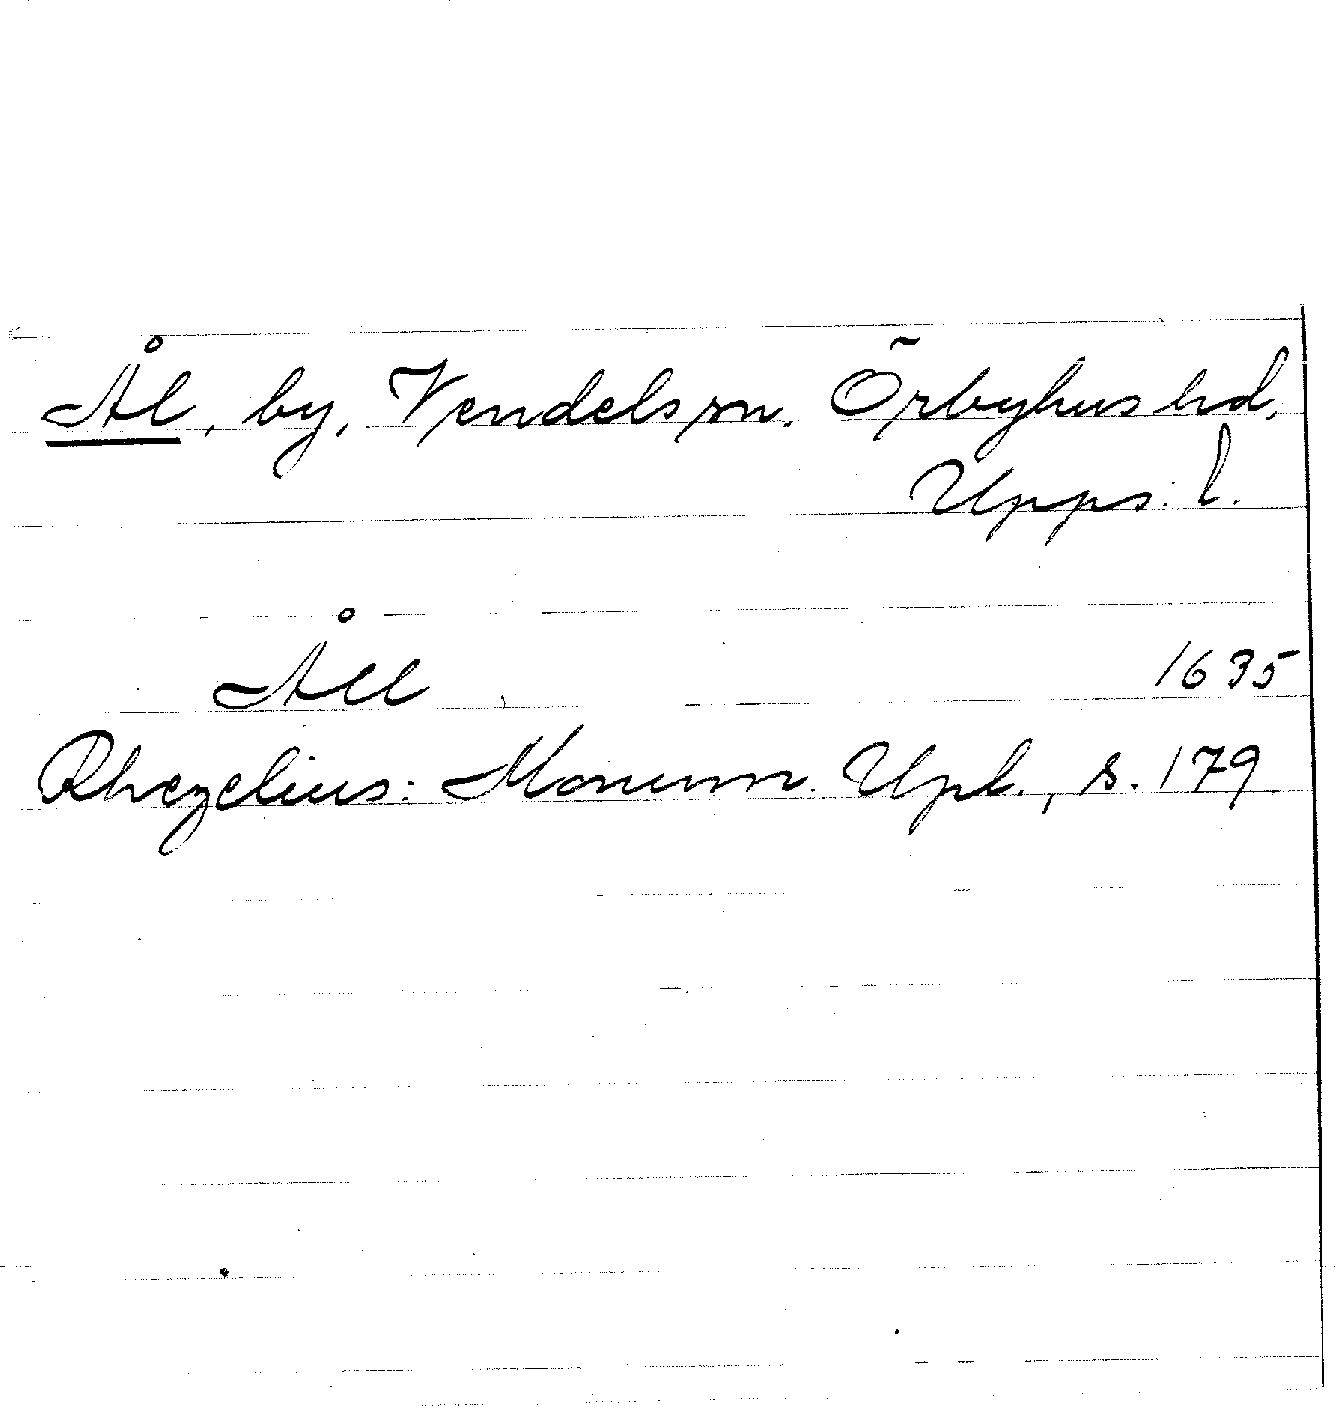 Ål, by, Vendels sn. Örbyhus hd,
Upps. l.
Åll 1635
Rhezelius: Monum. Upl., s. 179